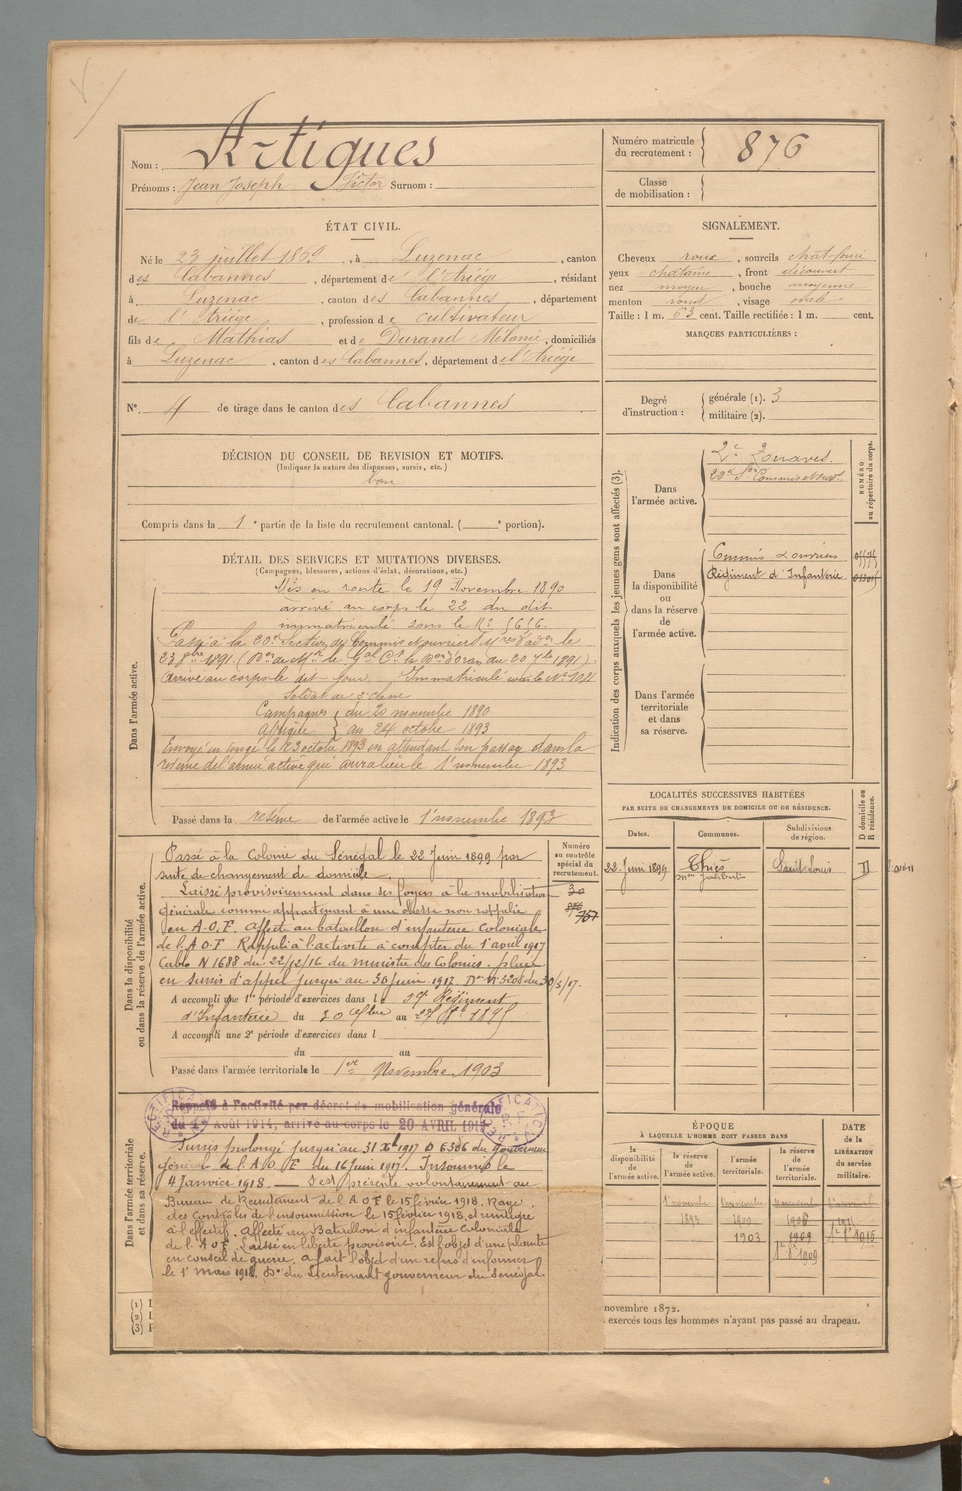 Nom : Artigues
Prénoms : Jean Joseph Victor Surnom :
Numéro matricule du recrutement : 876
Classe de mobilisation :
ÉTAT CIVIL.
Né le 23 juillet 1869, à Luzenac, canton
des Cabannes, département de l'Ariège, résidant
à Luzenac, canton des Cabannes, département
de l'Ariège, profession de cultivateur
fils de Mathias et de Durand Mélanie, domiciliés
à Luzenac, canton des Cabannes, département de l'Ariège
N° 4 de tirage dans le canton des Cabannes
SIGNALEMENT.
Cheveux roux, sourcils chat. foncé
yeux chatains, front découvert
nez moyen, bouche moyenne
menton rond, visage ovale
Taille : 1 m. 63 cent. Taille rectifiée : 1 m. cent.
MARQUES PARTICULIÈRES :
Degré d'instruction : générale (1). 3
militaire (2).
DÉCISION DU CONSEIL DE REVISION ET MOTIFS.
(Indiquer la nature des dispenses, sursis, etc.)
bon
Compris dans la 1e partie de la liste du recrutement cantonal. ( e portion).
DÉTAIL DES SERVICES ET MUTATIONS DIVERSES.
(Campagnes, blessures, actions d'éclat, décorations, etc.)
Dans l'armée active.
Mis en route le 19 Novembre 1890
arrivé au corps le 22 du dit
immatriculé sous le N° 5656.
Passé à la 20e Section de Commis et ouvriers le
23 1891.
Arrivé au corps le dit jour. Immatriculé sous le N°
Soldat de 2e classe
Campagnes du 20 novembre 1890
Afrique au 24 octobre 1893
Envoyé en congé le 23 octobre 1893 en attendant son passage dans la
réserve de l'armée active qui aura lieu le 1er novembre 1893
Passé dans la réserve de l'armée active le 1er novembre 1893
Indication des corps auxquels les jeunes gens sont affectés (3).
NUMÉRO au répertoire du corps.
Dans l'armée active.
2e Zouaves.
20e Son Commis et ouvrs
Dans la disponibilité ou dans la réserve de l'armée active.
Commis & ouvriers
Régiment d'Infanterie
Dans l'armée territoriale et dans sa réserve.
LOCALITÉS SUCCESSIVES HABITÉES
PAR SUITE DE CHANGEMENTS DE DOMICILE OU DE RÉSIDENCE.
Dates. Communes. Subdivisions de région. D domicile ou R résidence.
22 Juin 1899 Thiès Saint-Louis D
Dans la disponibilité ou dans la réserve de l'armée active.
Numéro au contrôle spécial du recrutement.
Passé à la Colonie du Sénégal le 22 Juin 1899 par
suite de changement de domicile.
Laissé provisoirement dans ses foyers à la mobilisation
générale comme appartenant à une classe non rappelée
en A.O.F. Affecté au bataillon d'infanterie Coloniale
de l'A.O.F. Rappelé à l'activité à compter du 1er avril 1917
Cablo N 1688 du 22/12/16 du ministre des Colonies. placé
en sursis d'appel jusqu'au 30 Juin 1917. Don N° 3208 du 30/5/17.
30
757
A accompli une 1re période d'exercices dans le 59e Régiment
d'Infanterie du 30 au 1895
A accompli une 2e période d'exercices dans l
du au
Passé dans l'armée territoriale le 1er Novembre 1903
Dans l'armée territoriale et dans sa réserve.
RECTIFICATION
Rappelé à l'activité par décret de mobilisation générale
du 1er Août 1914, arrivé au corps le 20 AVRIL 191
RECTIFICATION
Sursis prolongé jusqu'au 31 Xbre 1917 D 6306 du Gouverneur
Général de l'A.O.F. du 16 Juin 1917. Insoumis le
4 Janvier 1918. S'est présenté volontairement au
Bureau de Recrutement de l'A O F le 15 février 1918. Rayé
des Contrôles de l'insoumission le 15 février 1918 et réintégré
à l'effectif. Affecté au Bataillon d'infanterie Coloniale
de l'A O F. Laissé en liberté provisoire. Est l'objet d'une plainte
en conseil de guerre. a fait l'objet d'un refus d'informer
le 1er mars 1918. Don du Lieutenant gouverneur du Sénégal.
ÉPOQUE
À LAQUELLE L'HOMME DOIT PASSER DANS
la disponibilité de l'armée active. la réserve de l'armée active. l'armée territoriale. la réserve de l'armée territoriale.
DATE de la LIBÉRATION du service militaire.
1er novembre
1893 1900
1903 1909
1er 8bre 1909
(1)
(2)
(3)
novembre 1872.
exercés tous les hommes n'ayant pas passé au drapeau.